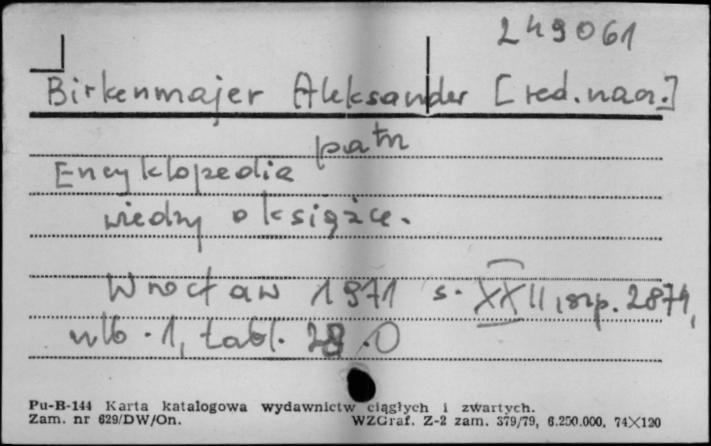 249061
Birkenmajer Aleksander [red. nacz.]
patrz
Encyklopedia
wiedzy o książce.
Wrocław 1971 s. XXII, szp. 2874,
nlb. 1, tabl. 28.
Pu-B-144 Karta katalogowa wydawnictw ciągłych i zwartych.
Zam. nr 629/DW/On. WZGraf. Z-2 zam. 379/79, 6.250.000, 74X120